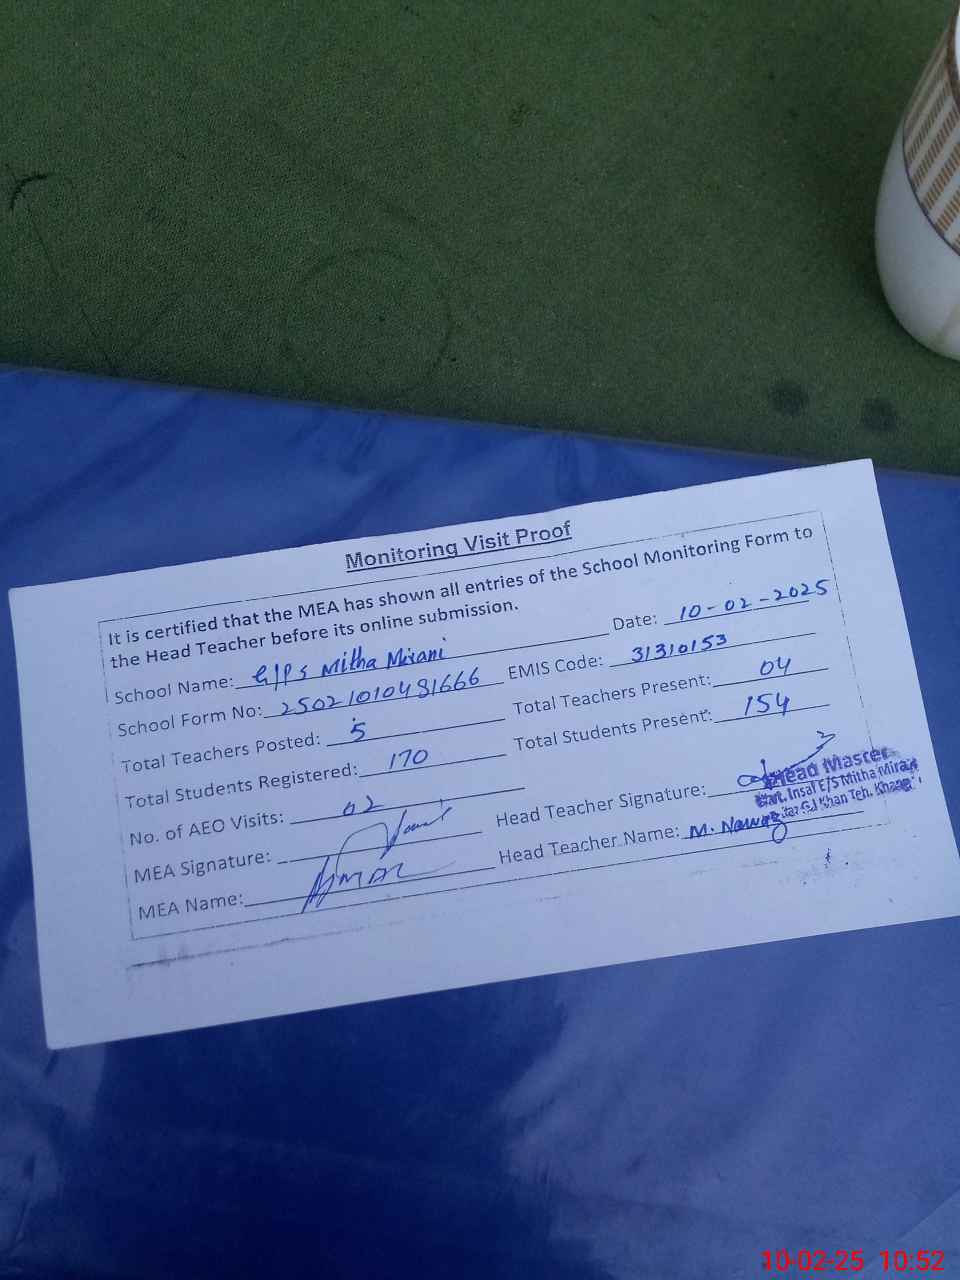 Monitoring Visit Proof
It is certified that the MEA has shown all entries of the School Monitoring Form to
the Head Teacher before its online submission.
School Name: G/PS Mitha Mirani Date: 10-02-2025
School Form No: 2502101010481666 EMIS Code: 31310153
Total Teachers Posted: 5 Total Teachers Present: 04
Total Students Registered: 170 Total Students Present: 154
No. of AEO Visits: 02
MEA Signature: Head Teacher Signature:
MEA Name: Head Teacher Name: M. Nawaz
Head Master
Insaf E/S Mitha Mirani
Khan Teh.
10-02-25 10:52